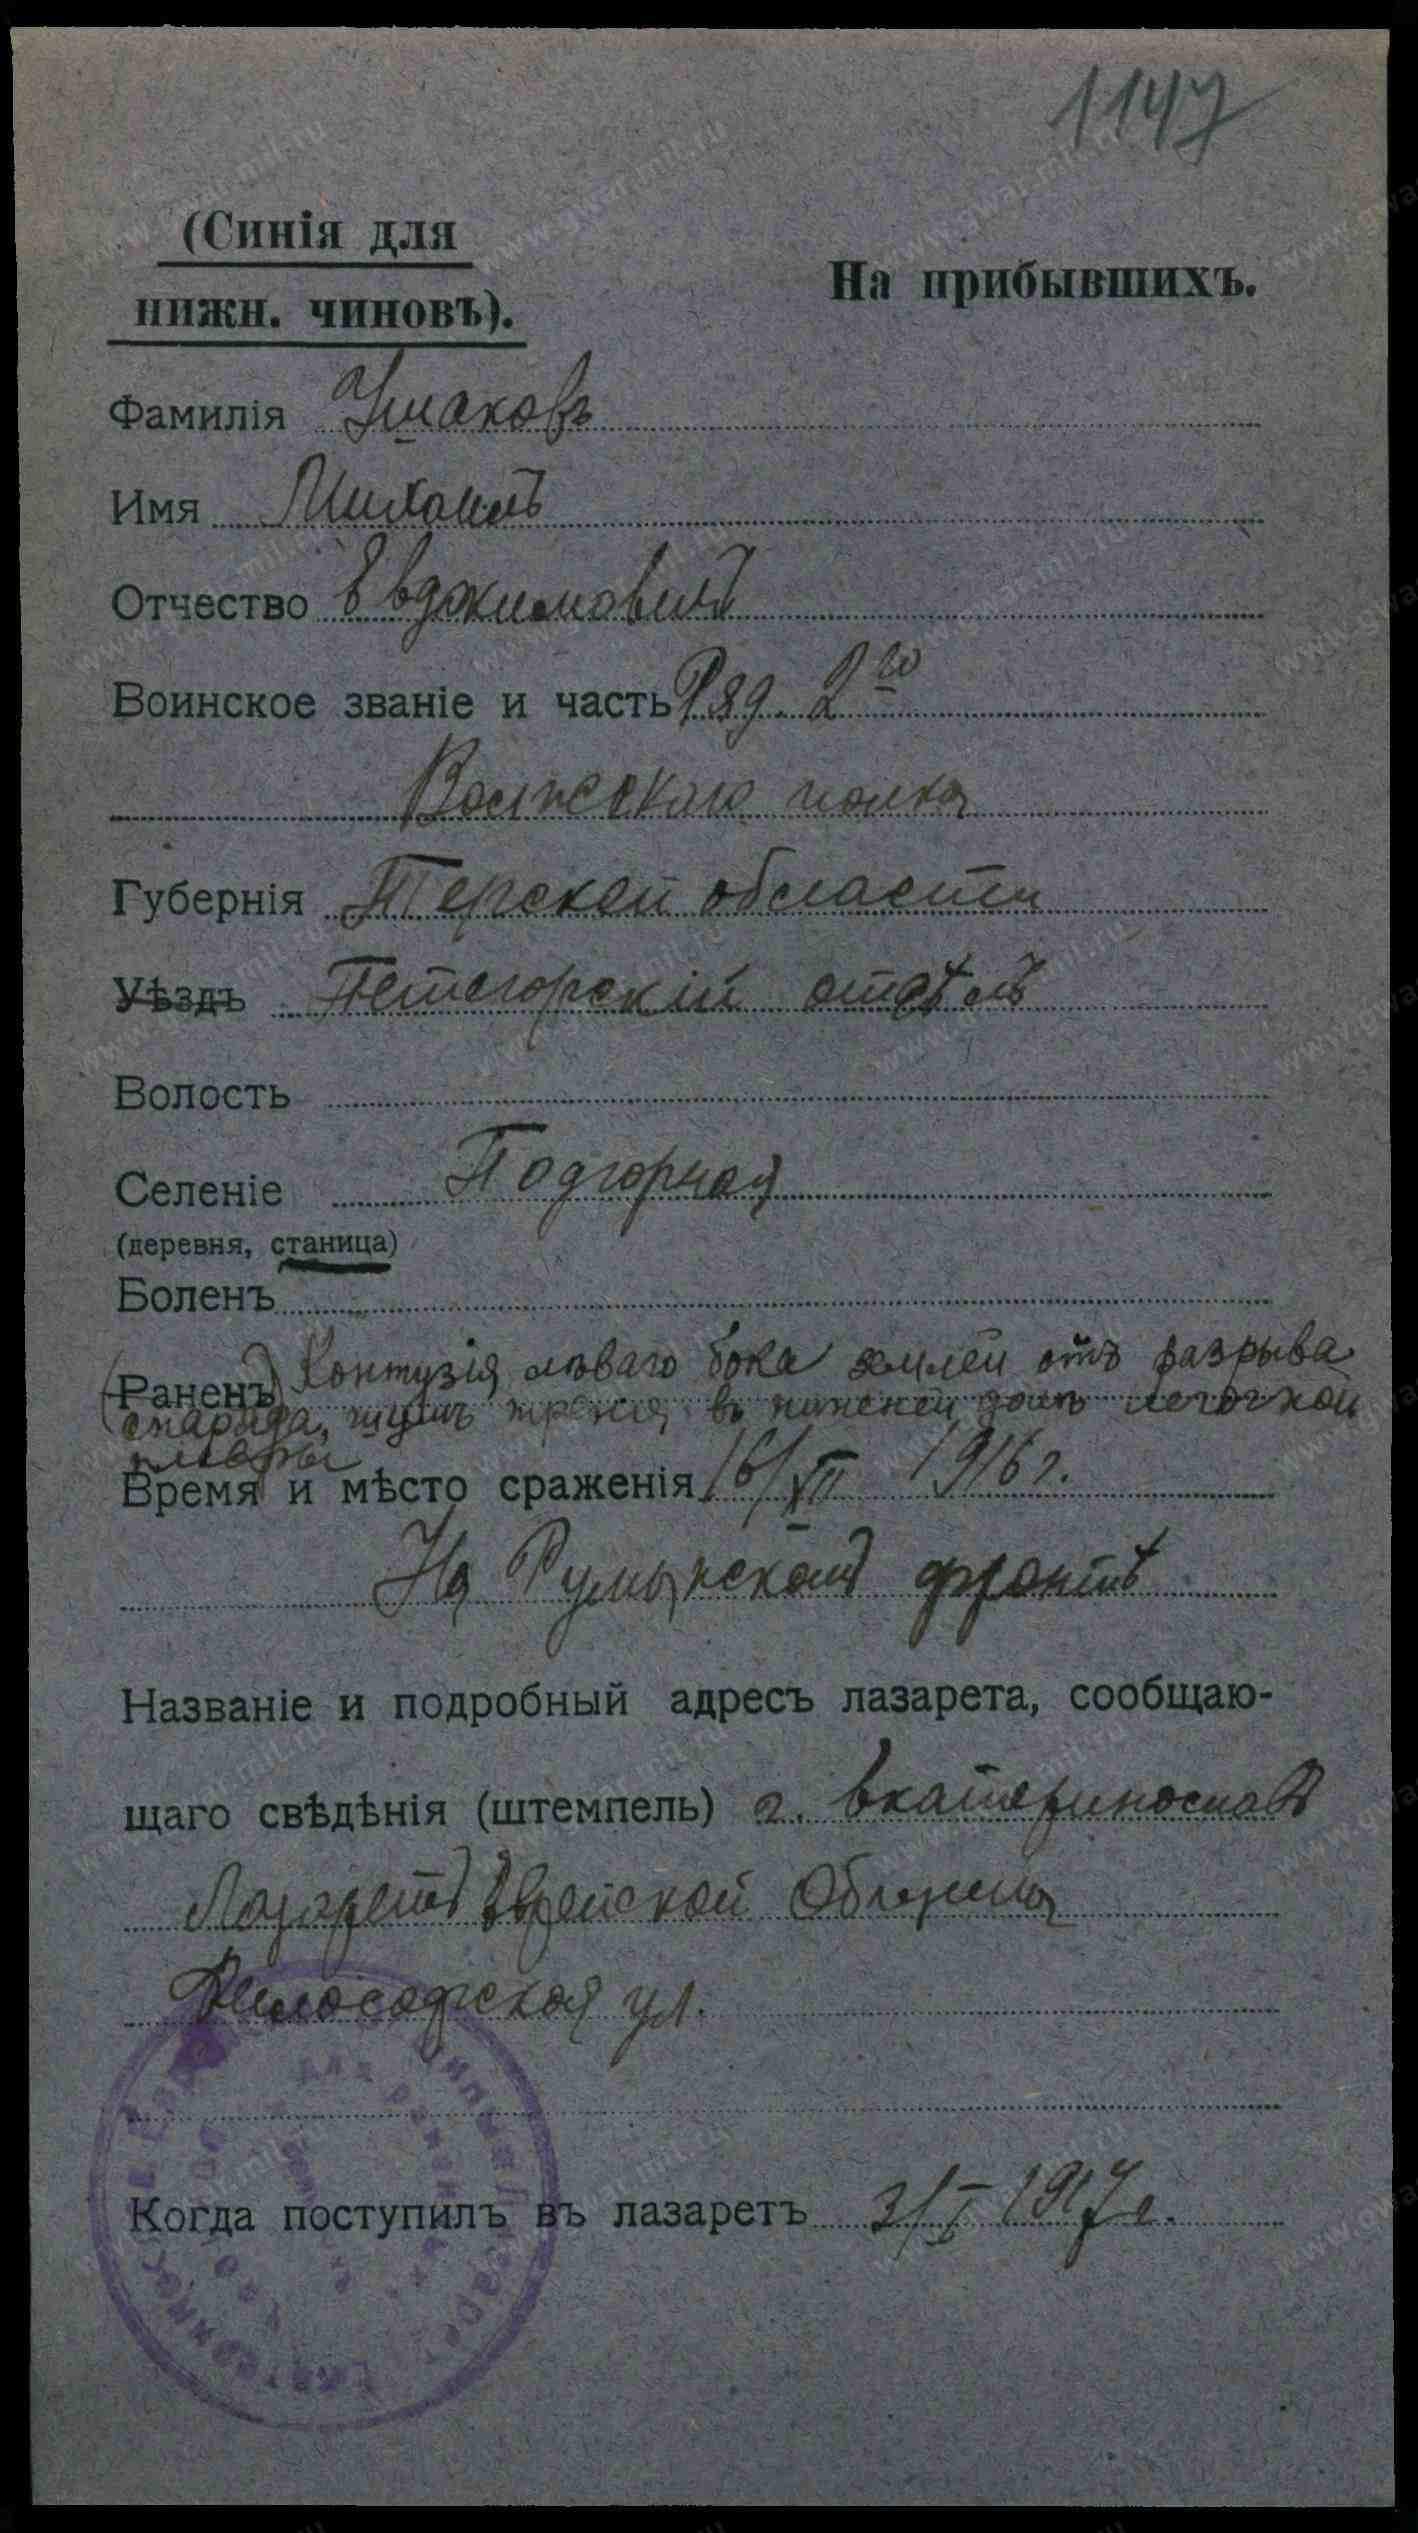 1147
(Синія для
нижн. чиновъ).
На прибывшихъ.
Фамилія Ушаковъ
Имя Михаилъ
Отчество Евдокимовичъ
Воинское званіе и часть Ряд. 2го
Волжскаго полка
Губернія Терской области
Уѣздъ Петегорскій отдѣлъ
Волость
Селеніе Подгорная
(деревня, станица)
Боленъ
(Раненъ) Контузія лѣваго бока землей отъ разрыва
снаряда, шумъ тренія въ нижней долѣ легочной
плевры
Время и мѣсто сраженія 16/XII 1916 г.
На Румынскомъ фронтѣ
Названіе и подробный адресъ лазарета, сообщаю-
щаго свѣдѣнія (штемпель) г. Екатеринославъ
Лазаретъ Еврейской Общины
Философская ул.
Когда поступилъ въ лазаретъ 3/I 1917 г.
www.gwar.mil.ru